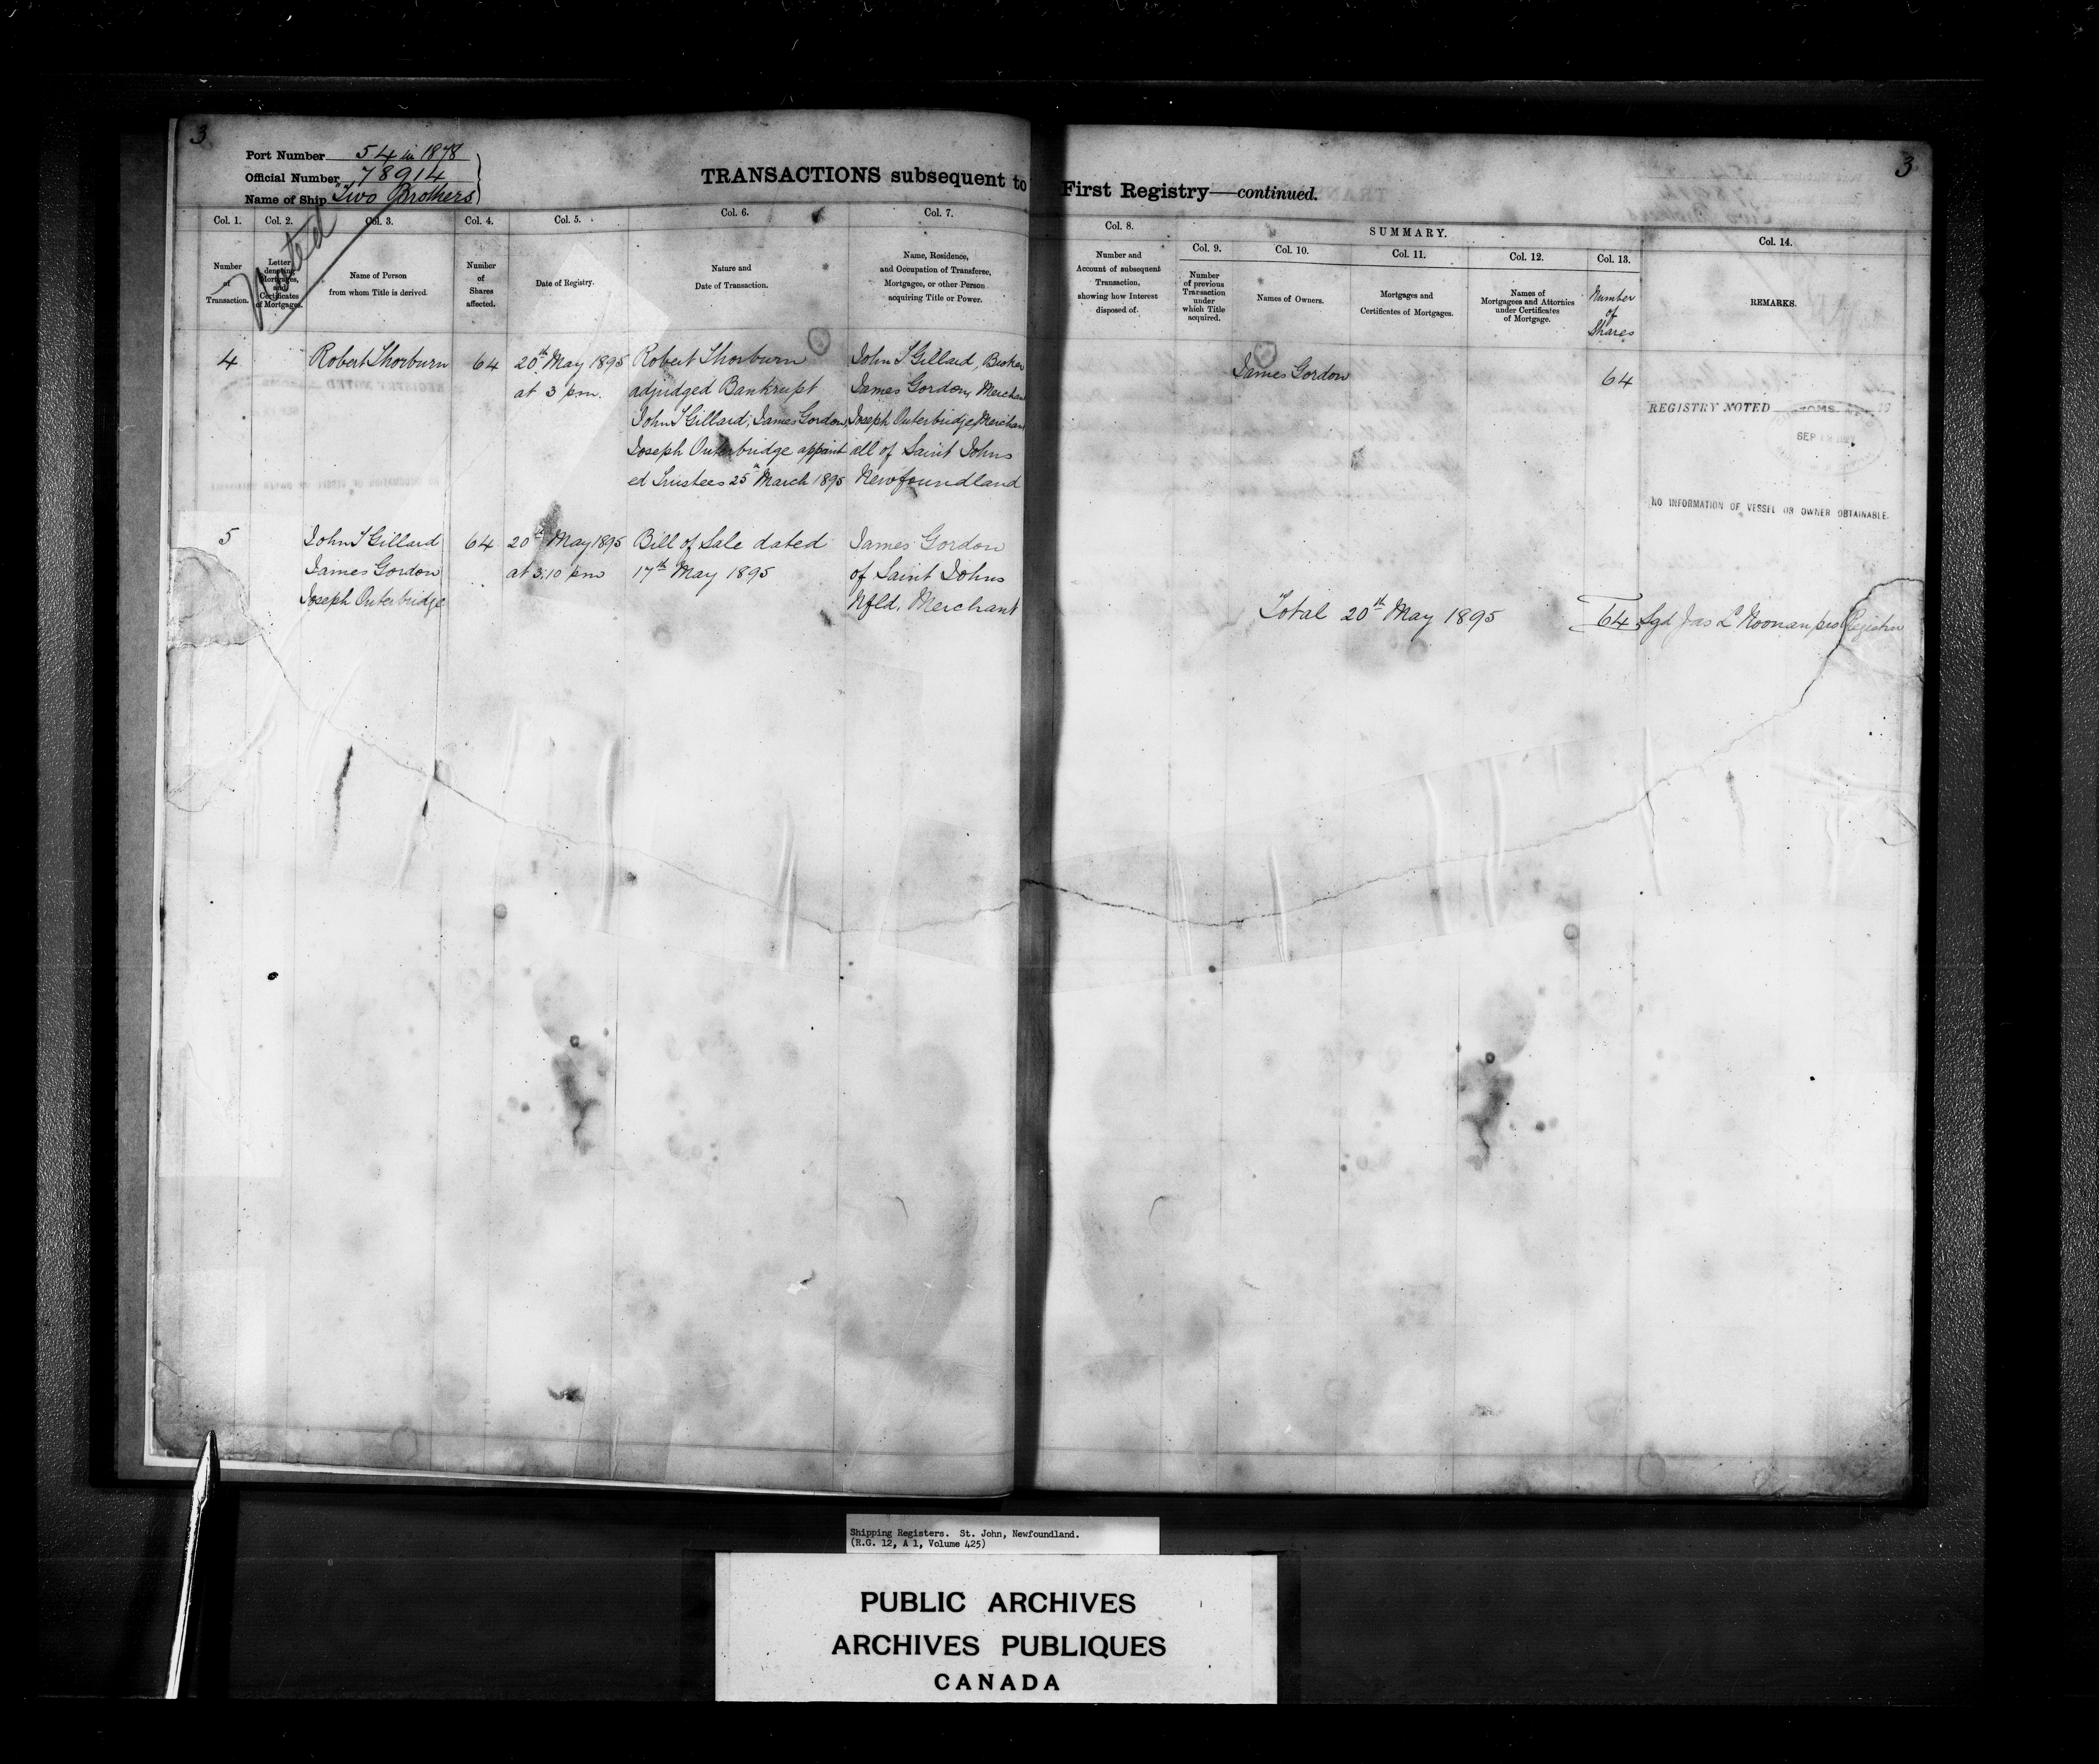 3
Port Number 54 in 1878
Official Number 78914
Name of Ship "Two Brothers"
Noted
TRANSACTIONS subsequent to
Col. 1. Col. 2. Col. 3. Col. 4. Col. 5. Col. 6. Col. 7.
Number of Transaction.
Letter denoting Mortgages, and Certificates of Mortgages.
Name of Person from whom Title is derived.
Number of Shares affected.
Date of Registry.
Nature and Date of Transaction.
Name, Residence, and Occupation of Transferee, Mortgagee, or other Person acquiring Title or Power.
4 Robert Thorburn 64 20th May 1895 Robert Thorburn John T Gillard, Broker
at 3 pm. adjudged Bankrupt James Gordon, Merchan
John T Gillard, James Gordon, Joseph Outerbridge, Merchan
Joseph Outerbridge appoint all of Saint Johns
ed Trustees 25th March 1895 Newfoundland
5 John T Gillard 64 20th May 1895 Bill of Sale dated James Gordon
James Gordon at 3.10 pm 17th May 1895 of Saint Johns
Joseph Outerbridge Nfld. Merchant
3
First Registry—continued.
Col. 8. SUMMARY. Col. 14.
Col. 9. Col. 10. Col. 11. Col. 12. Col. 13.
Number and Account of subsequent Transaction, showing how Interest disposed of.
Number of previous Transaction under which Title acquired.
Names of Owners.
Mortgages and Certificates of Mortgages.
Names of Mortgagees and Attornies under Certificates of Mortgage.
Number of Shares
REMARKS.
James Gordon 64
REGISTRY NOTED 19
SEP
NO INFORMATION OF VESSEL OR OWNER OBTAINABLE.
Total 20th May 1895 64 Sgd Jas L Noonan pro Registrar
Shipping Registers. St. John, Newfoundland.
(R.G. 12, A 1, Volume 425)
PUBLIC ARCHIVES
ARCHIVES PUBLIQUES
CANADA